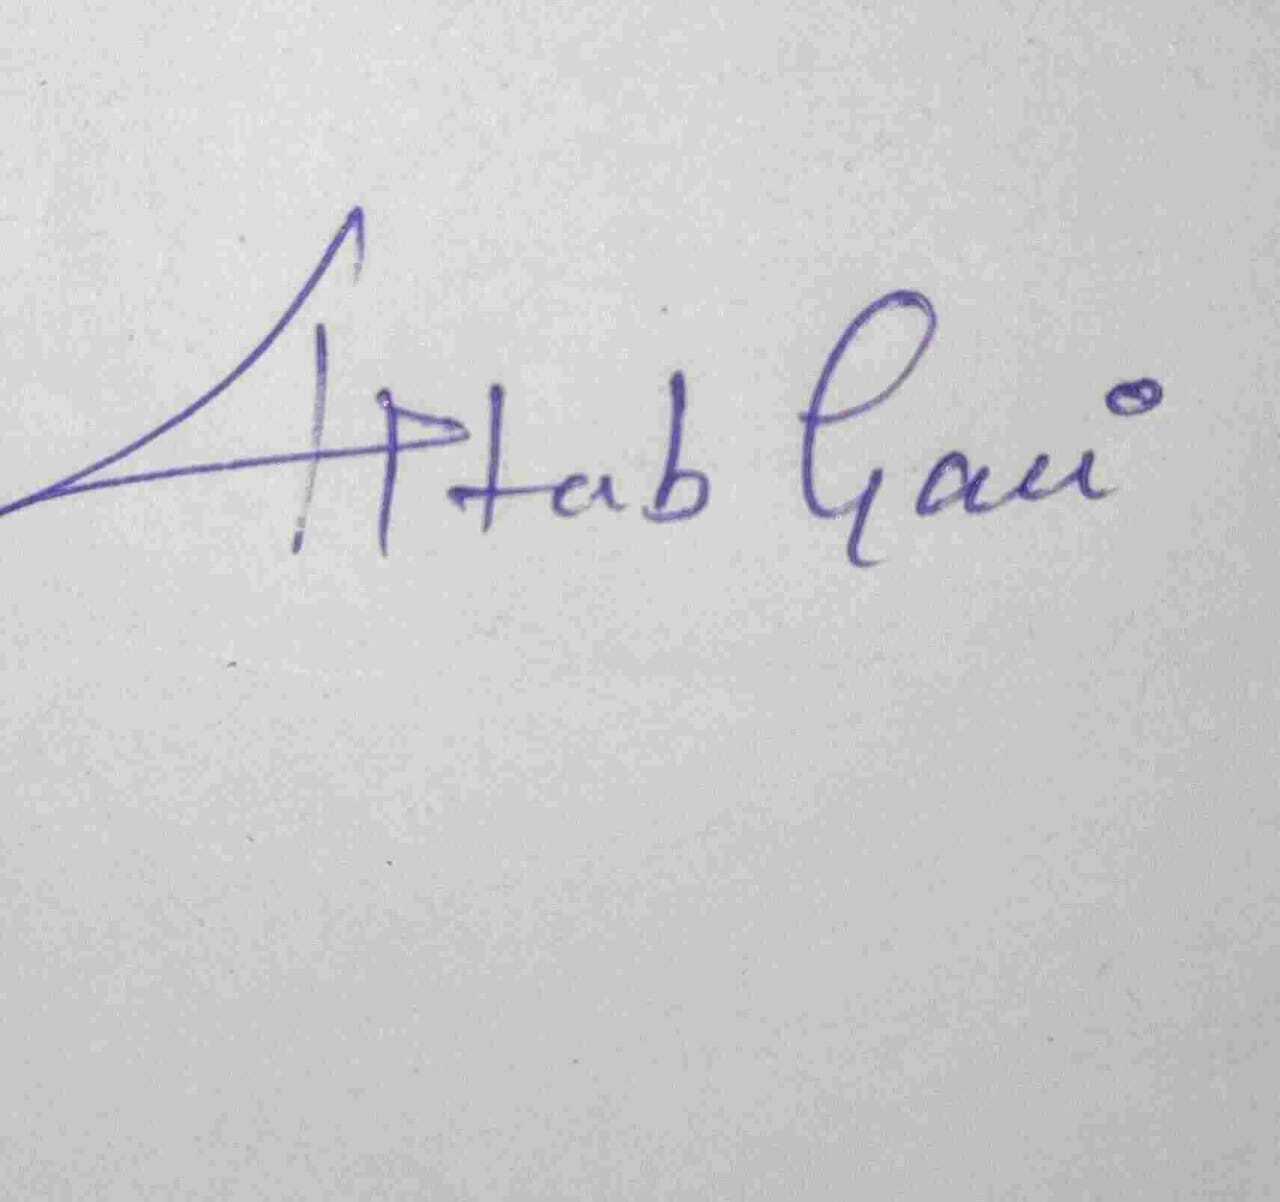 Aftab Gani